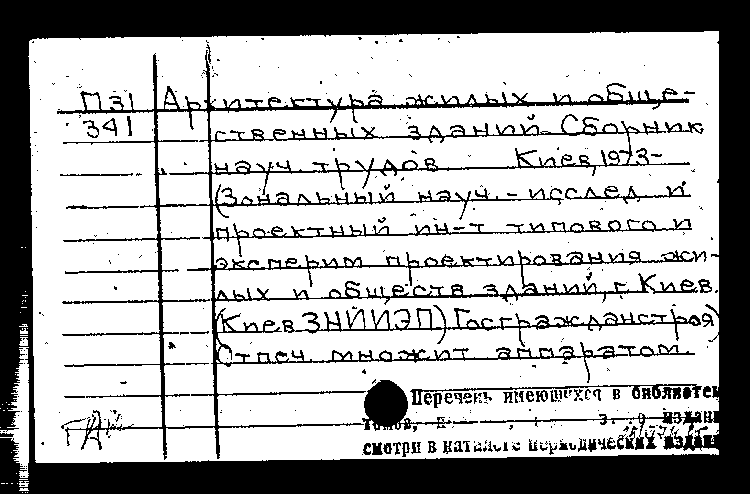 П31 Архитектура жилых и обще-
341 ственных зданий. Сборник
науч. трудов. Киев, 1973-
(Зональный науч.-исслед. и
проектный ин-т типового и
эксперим. проектирования жи-
лых и обществ. зданий, г. Киев.
(Киев ЗНИИЭП) Госгражданстроя)
Отпеч. множит. аппаратом.
Перечень имеющихся в библиотек
томов,
издани
смотри в каталоге периодических издани